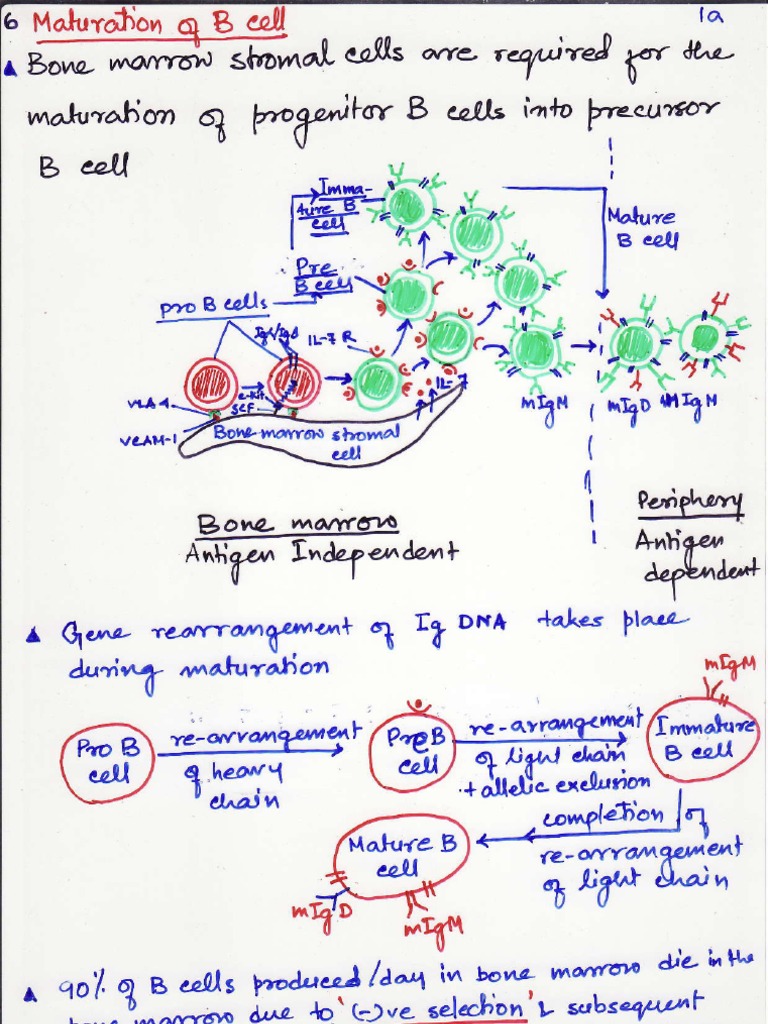 6 Maturation of B cell
1a
▲ Bone marrow stromal cells are required for the
maturation of progenitor B cells into precursor
B cell
Imma-
ture B
cell
Mature
B cell
Pre
B cell
Pro B cells
Igα/Igβ
IL-7 R
c-Kit
SCF
IL-7
VLA 4
VCAM-1
Bone marrow stromal
cell
mIgM
mIgD + mIgM
Bone marrow
Antigen Independent
Periphery
Antigen
dependent
▲ Gene rearrangement of Ig DNA takes place
during maturation
mIgM
Pro B
cell
re-arrangement
of heavy
chain
Pre B
cell
re-arrangement
of light chain
+ allelic exclusion
Immature
B cell
completion of
re-arrangement
of light chain
Mature B
cell
mIgD
mIgM
▲ 90% of B cells produced/day in bone marrow die in the
bone marrow due to '(-)ve selection' & subsequent